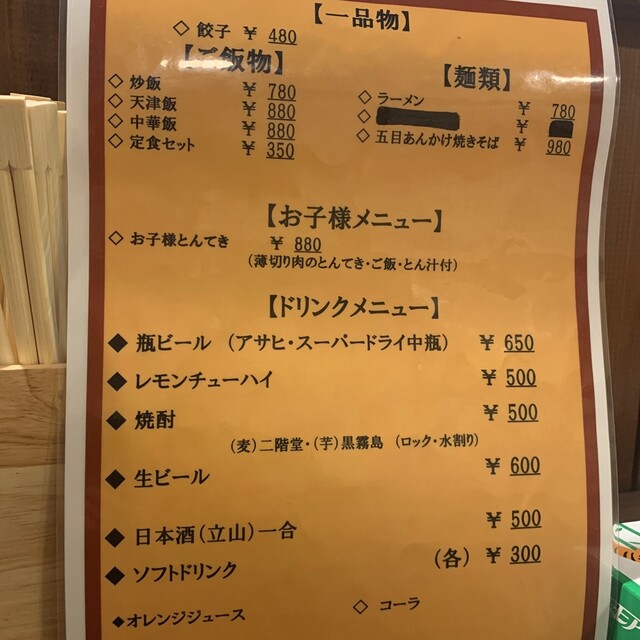 【一品物】
◇ 餃子 ¥ 480
【ご飯物】
◇ 炒飯 ¥ 780
◇ 天津飯 ¥ 880
◇ 中華飯 ¥ 880
◇ 定食セット ¥ 350
【麺類】
◇ ラーメン ¥ 780
◇ ¥
◇ 五目あんかけ焼きそば ¥ 980
【お子様メニュー】
◇ お子様とんてき ¥ 880
(薄切り肉のとんてき・ご飯・とん汁付)
【ドリンクメニュー】
◆ 瓶ビール (アサヒ・スーパードライ中瓶) ¥ 650
◆ レモンチューハイ ¥ 500
◆ 焼酎 ¥ 500
(麦)二階堂・(芋)黒霧島 (ロック・水割り)
◆ 生ビール ¥ 600
◆ 日本酒(立山)一合 ¥ 500
◆ ソフトドリンク (各) ¥ 300
◆オレンジジュース ◇ コーラ